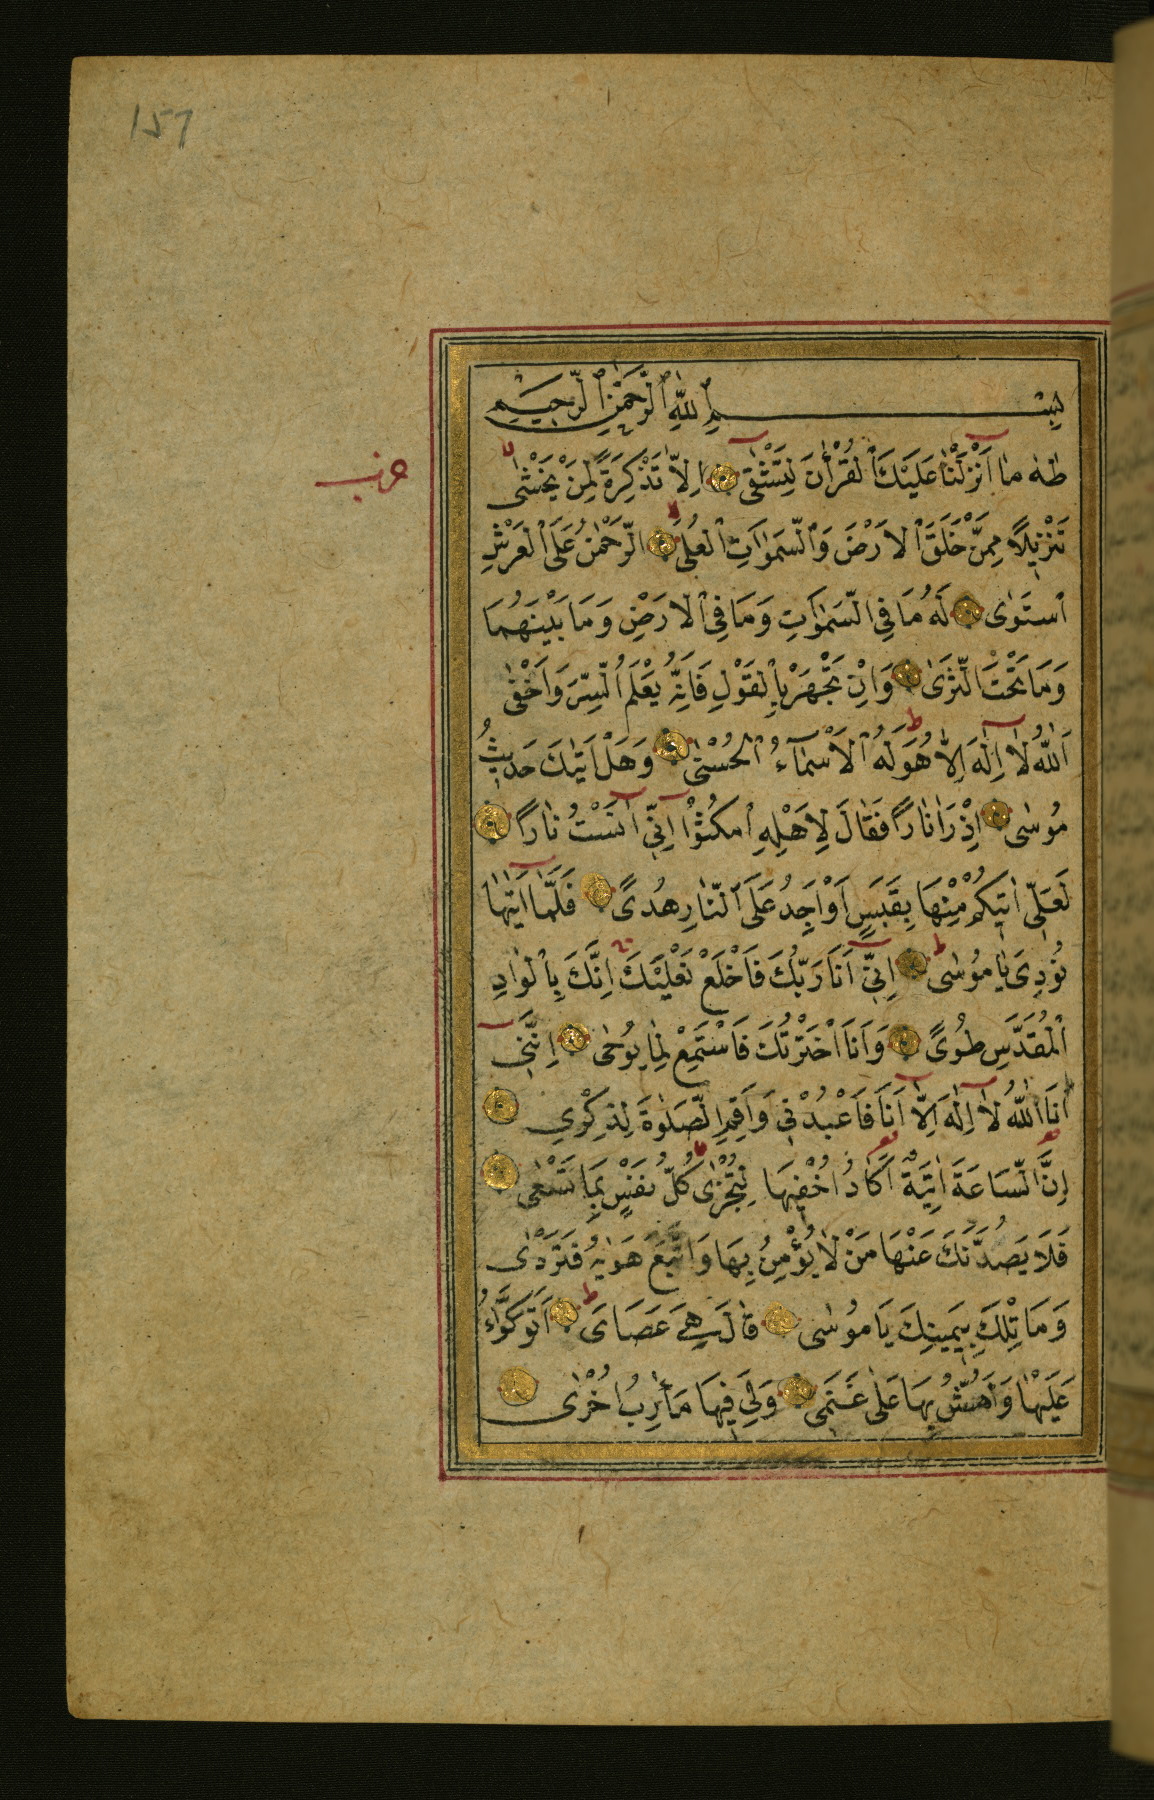 157
بِسْمِ ٱللّٰهِ ٱلرَّحْمٰنِ ٱلرَّحِيمِ
طٰهٰ مٰا اَنْزَلْنٰا عَلَيْكَ ٱلْقُرْأٰنَ لِتَشْقٰى اِلاّٰ تَذْكِرَةً لِمَنْ يَخْشٰى
حزب
تَنْزِيلاً مِمَّنْ خَلَقَ ٱلاَرْضَ وَٱلسَّمٰوَاتِ ٱلْعُلَى الرَّحْمٰنُ عَلَى ٱلْعَرْشِ
ٱسْتَوٰى لَهُ مَا فِي السَّمٰوَاتِ وَمَا فِي ٱلاَرْضِ وَمَا بَيْنَهُمَا
وَمَا تَحْتَ الثَّرَىٰ وَاِنْ تَجْهَرْ بِاِلْقَوْلِ فَاِنَّهُ يَعْلَمُ السِّرَّ وَاَخْفٰى
اَللّٰهُ لٰا اِلٰهَ اِلاّٰ هُوَ لَهُ ٱلاَسْمٰآءُ ٱلْحُسْنٰى وَهَلْ اَتٰيكَ حَدِيثُ
مُوسٰى اِذْ رَاٰ نٰاراً فَقٰالَ لِاَهْلِهِ ٱمْكُثُوْا اِنِّي اٰنَسْتُ نٰاراً
لَعَلِّي اٰتِيكُمْ مِنْهَا بِقَبَسٍ اَوْ اَجِدُ عَلَى ٱلنّٰارِ هُدًى فَلَمّٰا اَتٰيهٰا
نُودِيَ يٰا مُوسٰى اِنِّي اَنَا رَبُّكَ فَاخْلَعْ نَعْلَيْكَ اِنَّكَ بِالْوٰادِ
ٱلْمُقَدَّسِ طُوًى وَاَنَا اخْتَرْتُكَ فَاسْتَمِعْ لِمٰا يُوحٰى اِنَّنِي
اَنَا اللّٰهُ لٰا اِلٰهَ اِلاّٰ اَنَا فَاعْبُدْنِي وَاَقِمِ الصَّلٰوةَ لِذِكْرِي
اِنَّ السَّاعَةَ اٰتِيَةٌ اَكَادُ اُخْفِيهَا لِتُجْزٰى كُلُّ نَفْسٍ بِمَا تَسْعٰى
فَلَا يَصُدَّنَّكَ عَنْهَا مَنْ لٰا يُؤْمِنُ بِهَا وَاتَّبَعَ هَوٰيهُ فَتَرْدٰى
وَمَا تِلْكَ بِيَمِينِكَ يَا مُوسٰى قٰالَ هِيَ عَصَايَ اَتَوَكَّؤُا
عَلَيْهٰا وَاَهُشُّ بِهَا عَلٰى غَنَمِي وَلِيَ فِيهَا مَأٰرِبُ اُخْرٰى